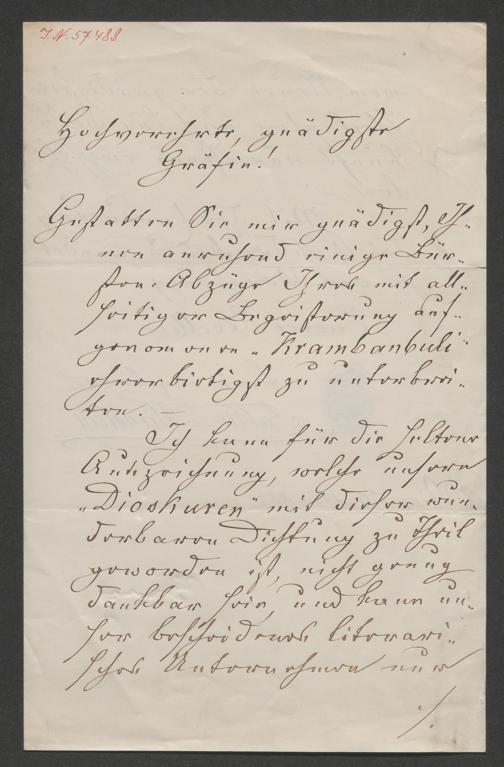 I.N. 57.488
Hochverehrte, gnädigste
Gräfin!
Gestatten Sie mir gnädigst, Ih-
nen anruhend einige Bür-
sten-Abzüge Ihres mit all-
seitiger Begeisterung auf-
genommenen „Krambambuli"
ehrerbietigst zu unterbrei-
ten. —
Ich kann für die seltene
Auszeichnung, welche unseren
„Dioskuren" mit dieser wun-
derbaren Dichtung zu Theil
geworden ist, nicht genug
dankbar sein, und kann un-
ser bescheidenes literari-
sches Unternehmen nur
./.